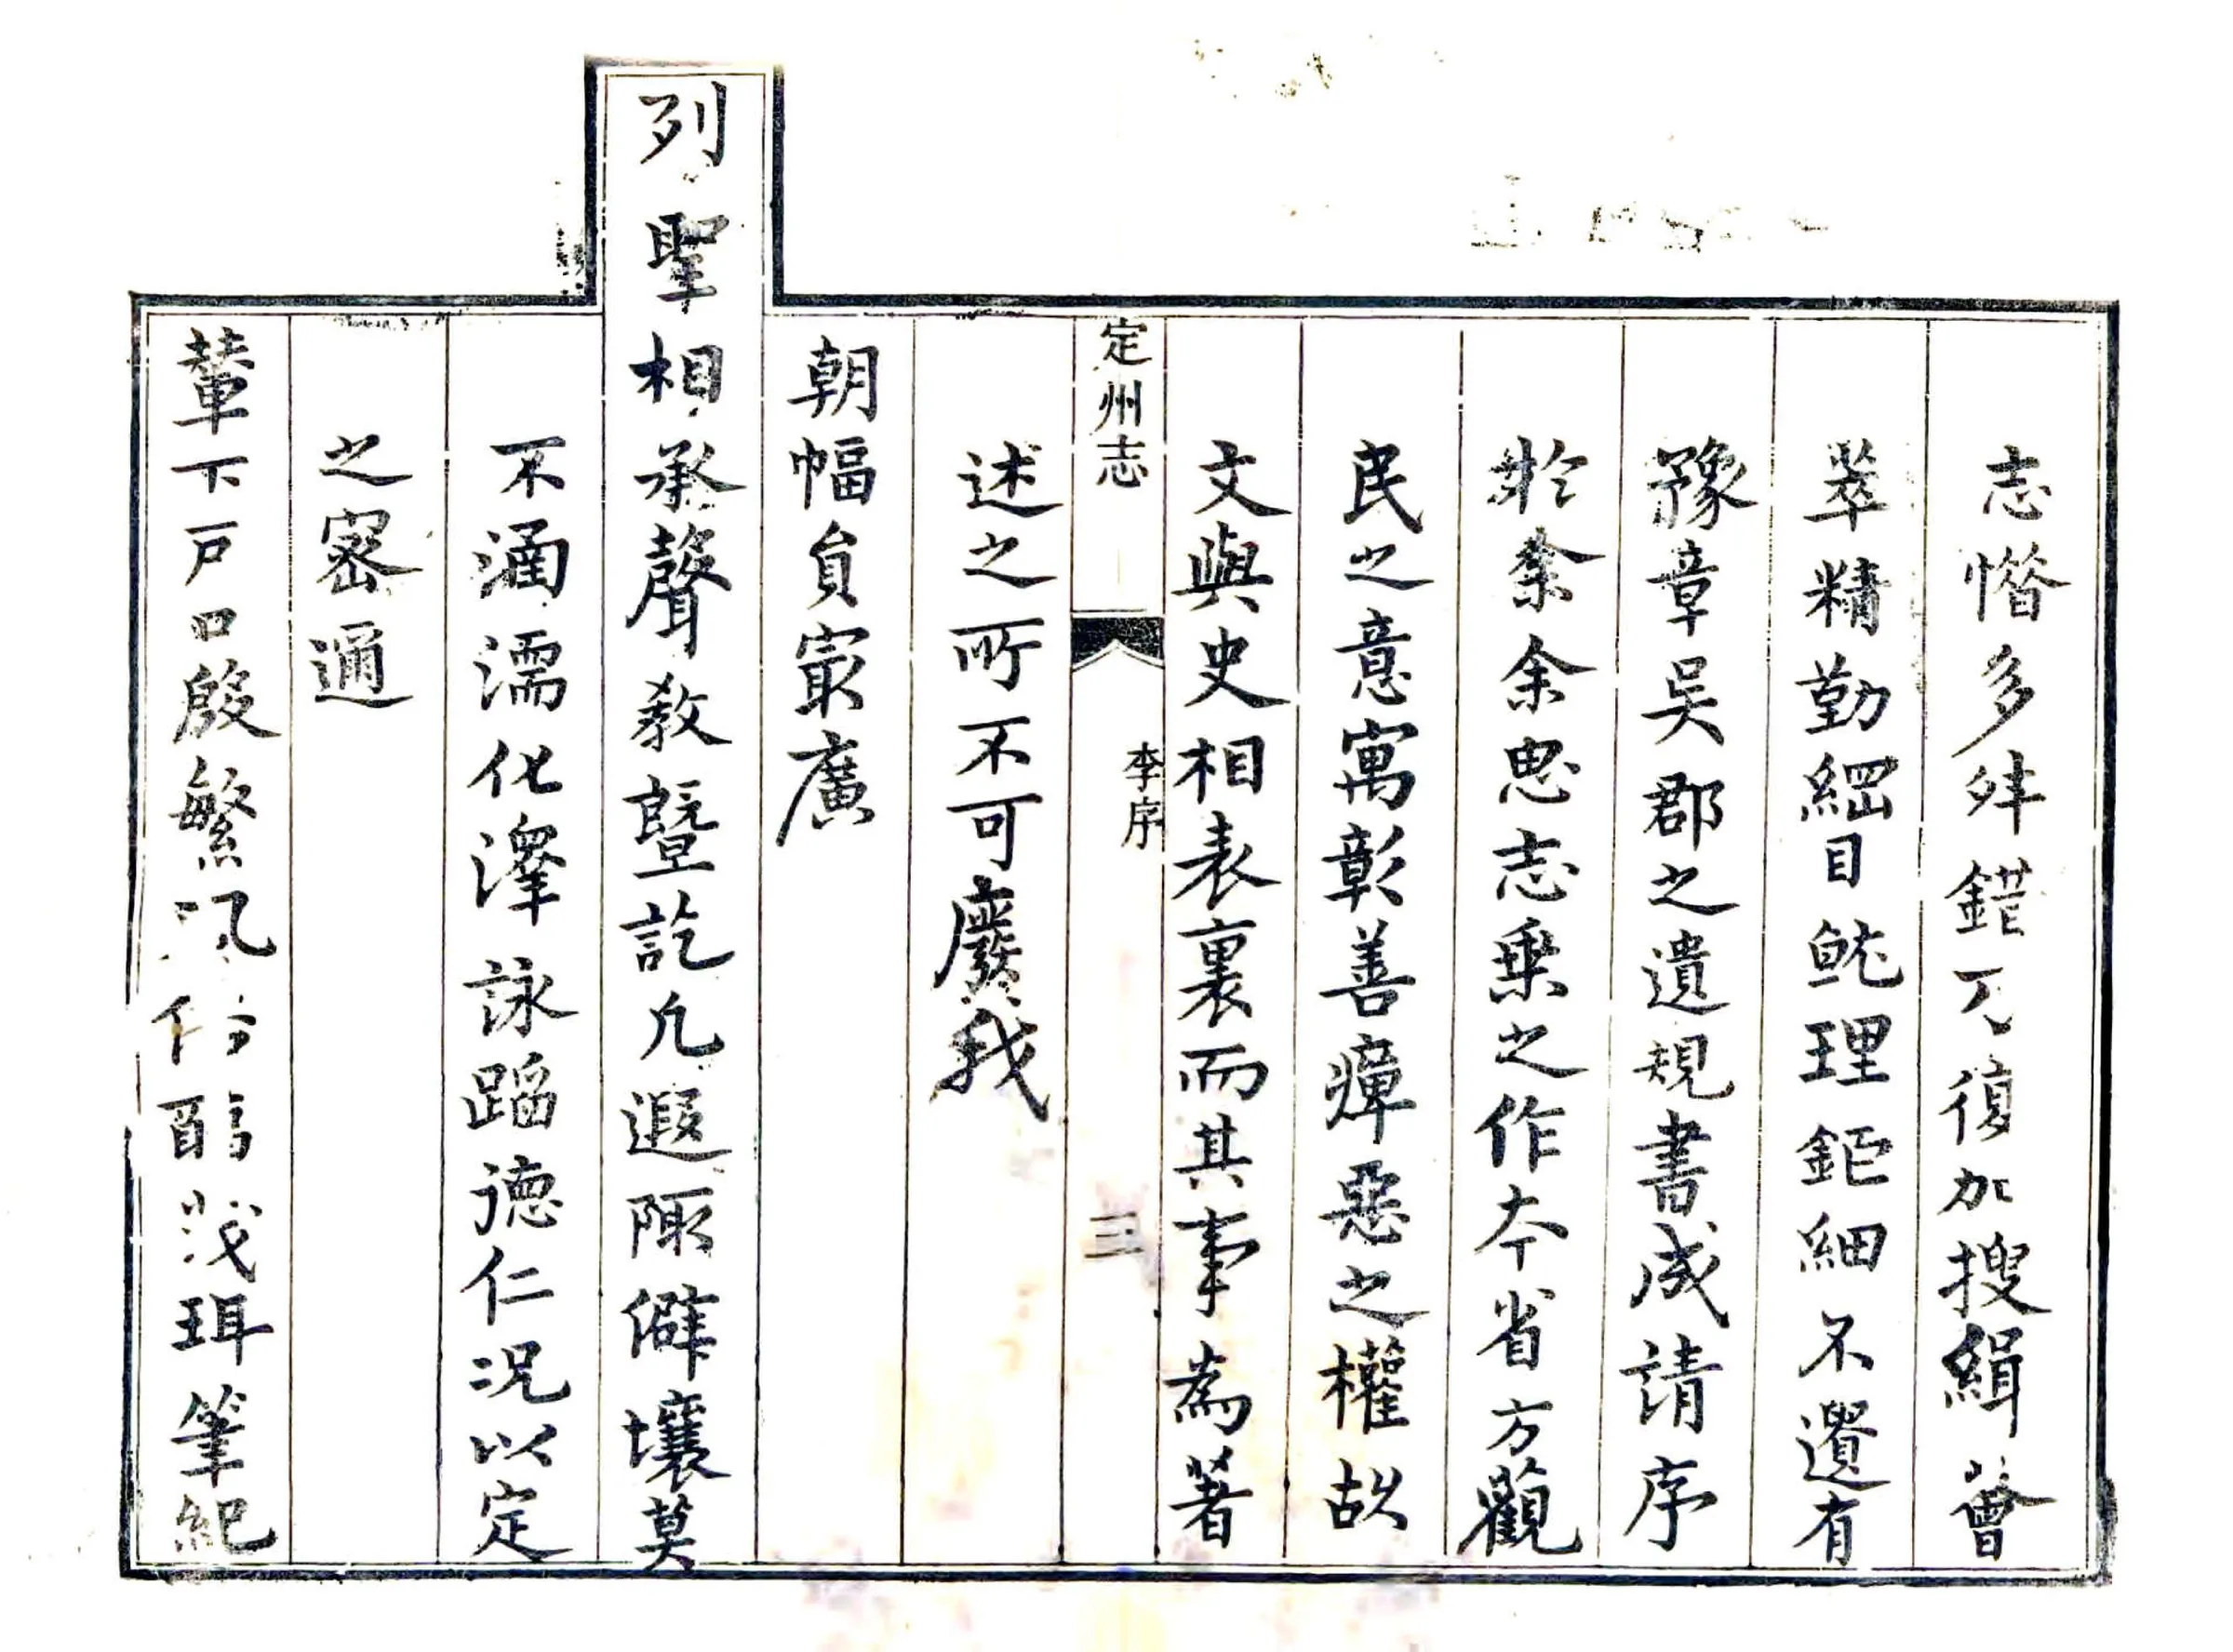 志慆多舛錯兀復加搜緝薈
萃精勤綱目既理鉅細不遺有
豫章吳郡之遺規書成請序
於余余思志乗之作本省方觀
民之意寓彰善癉惡之權故
文與史相表裏而其事為著
定州志
李序
三
述之所不可廢我
朝幅員寂廣
列聖相承聲教暨訖凡遐陬僻壤莫
不涵濡化澤詠蹈德仁況以定
之密邇
輦下戶口殷繁風俗醇茂珥筆紀